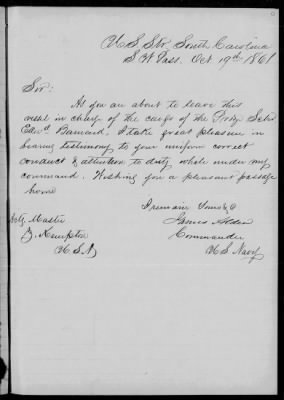 U S Str South Carolina
S W Pass. Oct 19th 1861
Sir:
As you are about to leave this
vessel in charge of the cargo of the Prize Schr
Edwd Barnard. I take great pleasure in
bearing testimony to your uniform correct
conduct & attention to duty while under my
command. Wishing you a pleasant passage
home
I remain Yours &c
James Alden
Commander
US Navy
Actg. Master
Z. Kempton
U.S.N